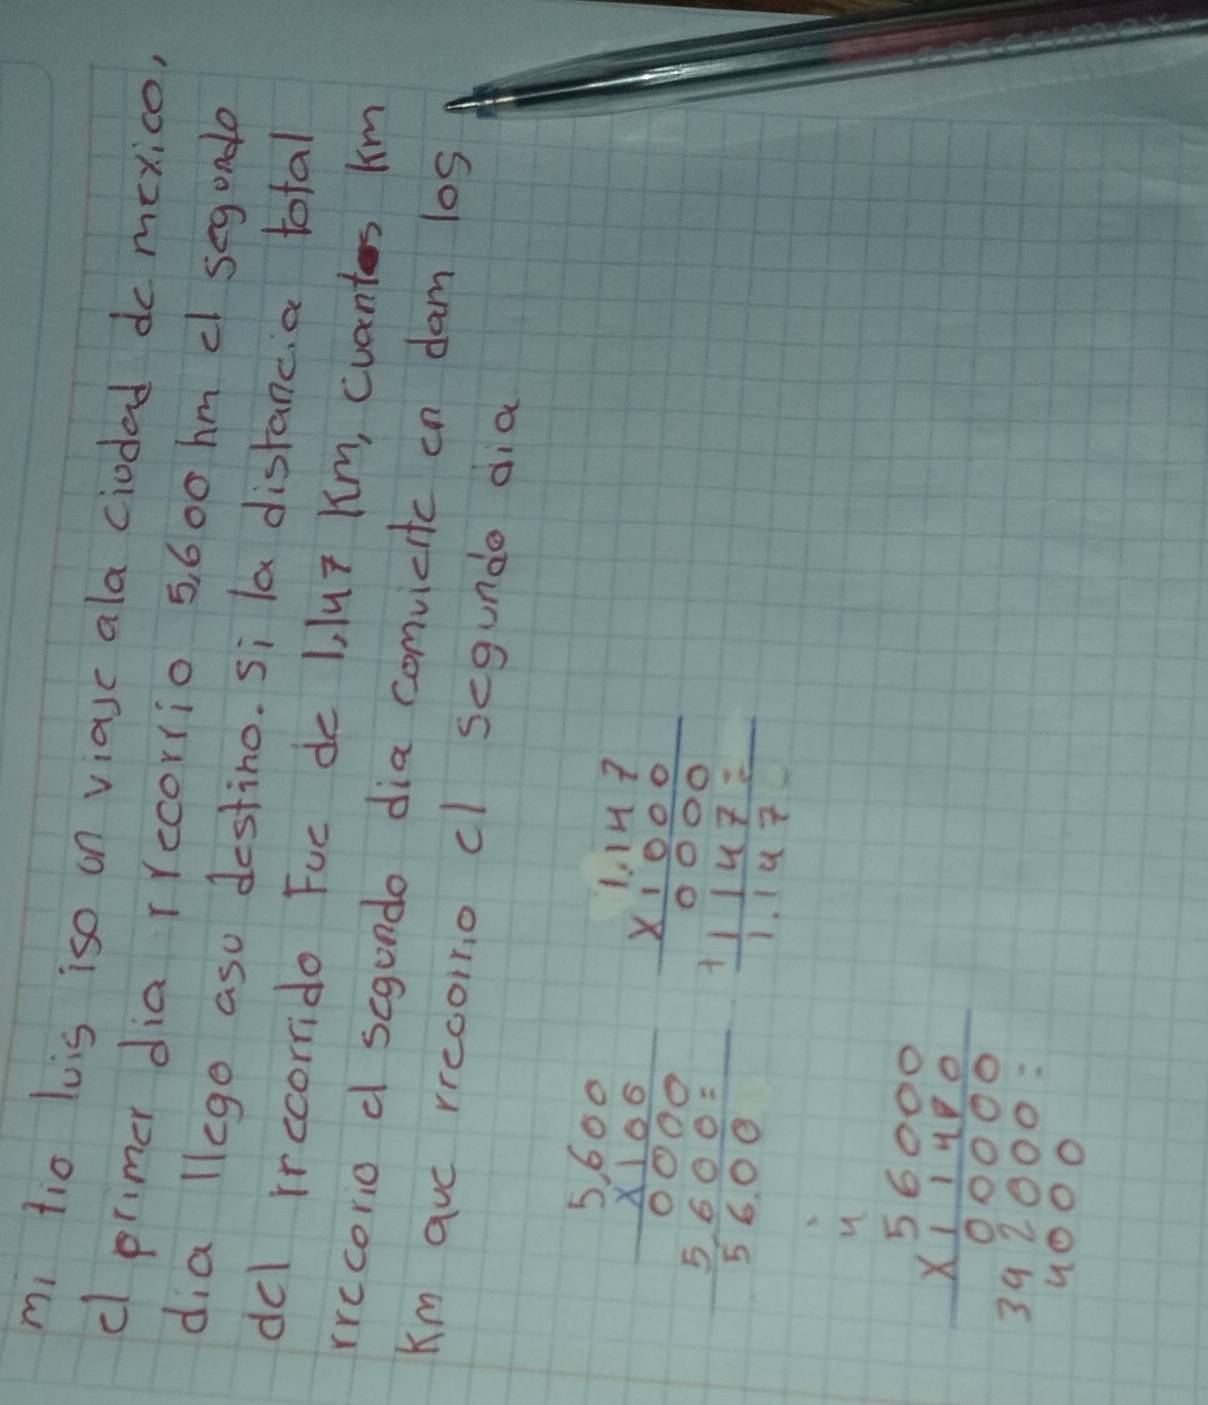 mi tio luis iso un viaje ala ciudad de mexico,
el primer dia rrecorrio 5,600 hm el segundo
dia llego asu destino. si la distancia total
del rrecorrido Fue de 1,147 Km, cuantos km
rrecorio el segundo dia comvierte en dam los
Km que rrecoirio el segundo dia
5,600
x100
0000
5,600=
56.00
1.147
x1000
0000
+1147=
1.147
4
56000
x1140
00000
392000=
400